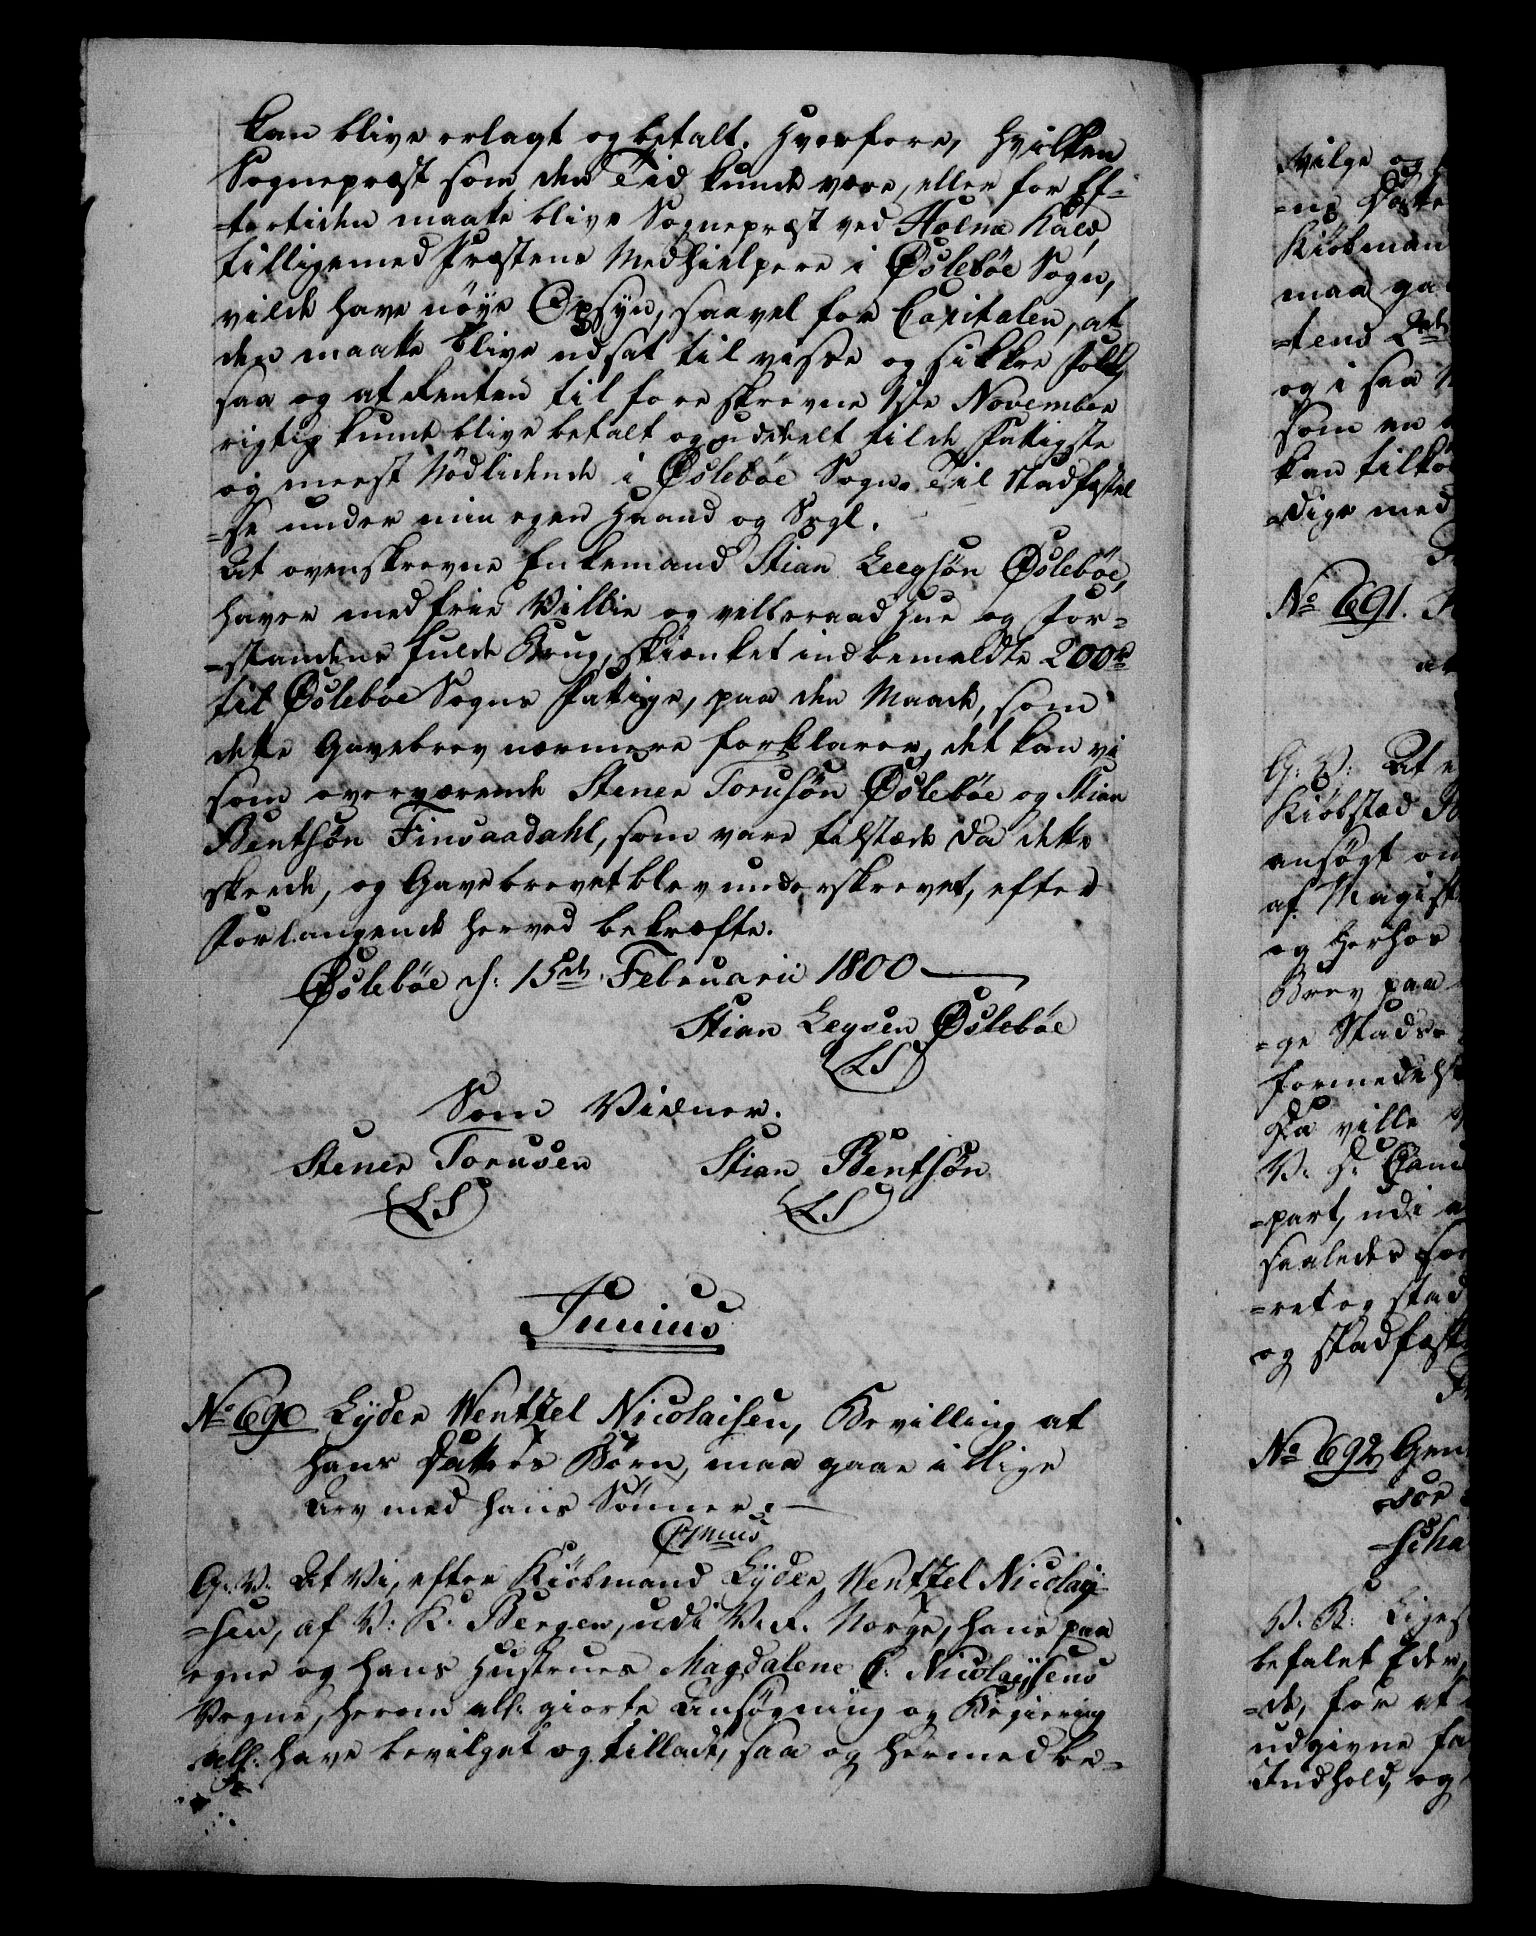 kan blive erlagt og betalt. Hvorfore, hvilken
Sognepræst som den Tid kunde være, eller for Ef-
=tertiden maate blive Sognepræst ved Holme Kald,
tilligemed Præstens Medhielpere i Øslebøe Sogn,
vilde have nøye Opsyn, saavel for Capitalen, at
den maatte blive udsat til visse og sikkre Folk,
saa og at Renten til foreskrevne  November
rigtig kunde blive betalt og uddeelt til de Fattigste
og meest Nødlidende i Øslebøe Sogn. Til Stadfæstel
=se under min egen Haand og Segl.
At ovenskrevne Enkemand Stian Leegsøn Øslebøe,
haver med frie Villie og velberaad Hue og For-
=standens fulde Brug, skiænket indbemeldte 200 rd
til Øsleboe Sogns Fattige, paa den Maade, som
dette Gavebrev nærmere forklarer, det kan vi
som overværende Stener Torusøn Øslebøe og Stian
Bentsøn Finsaadahl, som vare tilstæde da dette
skeede, og Gavebrevet blev underskrevet, efter
Forlangende herved bekræfte.
Øslebøe d: 15de Februarii 1800
Stian Legsen Øslebøe
(LS)
Som Vidner.
Stener Torusen Stian Bentsøn
(LS) (LS)
Junius
No 690 Lyder Wentzel Nicolaisen, Bevilling at
hans Datters Børn, maa gaae i lige
Arv med hans Sønner.
G: V: At Vi, efter Kiøbmand Lyder Wentzel Nicolay-
=sen, af V: K. Bergen, udi V. R. Norge, hans paa
egne og hans Hustrues Magdalene C. Nicolaysens
Vegne, herom all: giorte Ansøgning og Begiering
all: have bevilget og tilladt, saa og hermed be-
vilge og
=ne Døtte
Kiøbman
maa gaa
=tens 2det
og i saa
som en
kan tilko
=dige med
No 691.
G: V: At
Kiøbstad
ansøgt om
af Magist
og herhos
Brev paa
=ge Stads
formedelst
Da ville
V: S: Cam
=part, udi
saaledes for
=ret og stad
og stadfæst
No 692 Gen
sor
scha
V: B: Liges
befalet Eder,
=de, for at
udgivne fa
Indhold, og